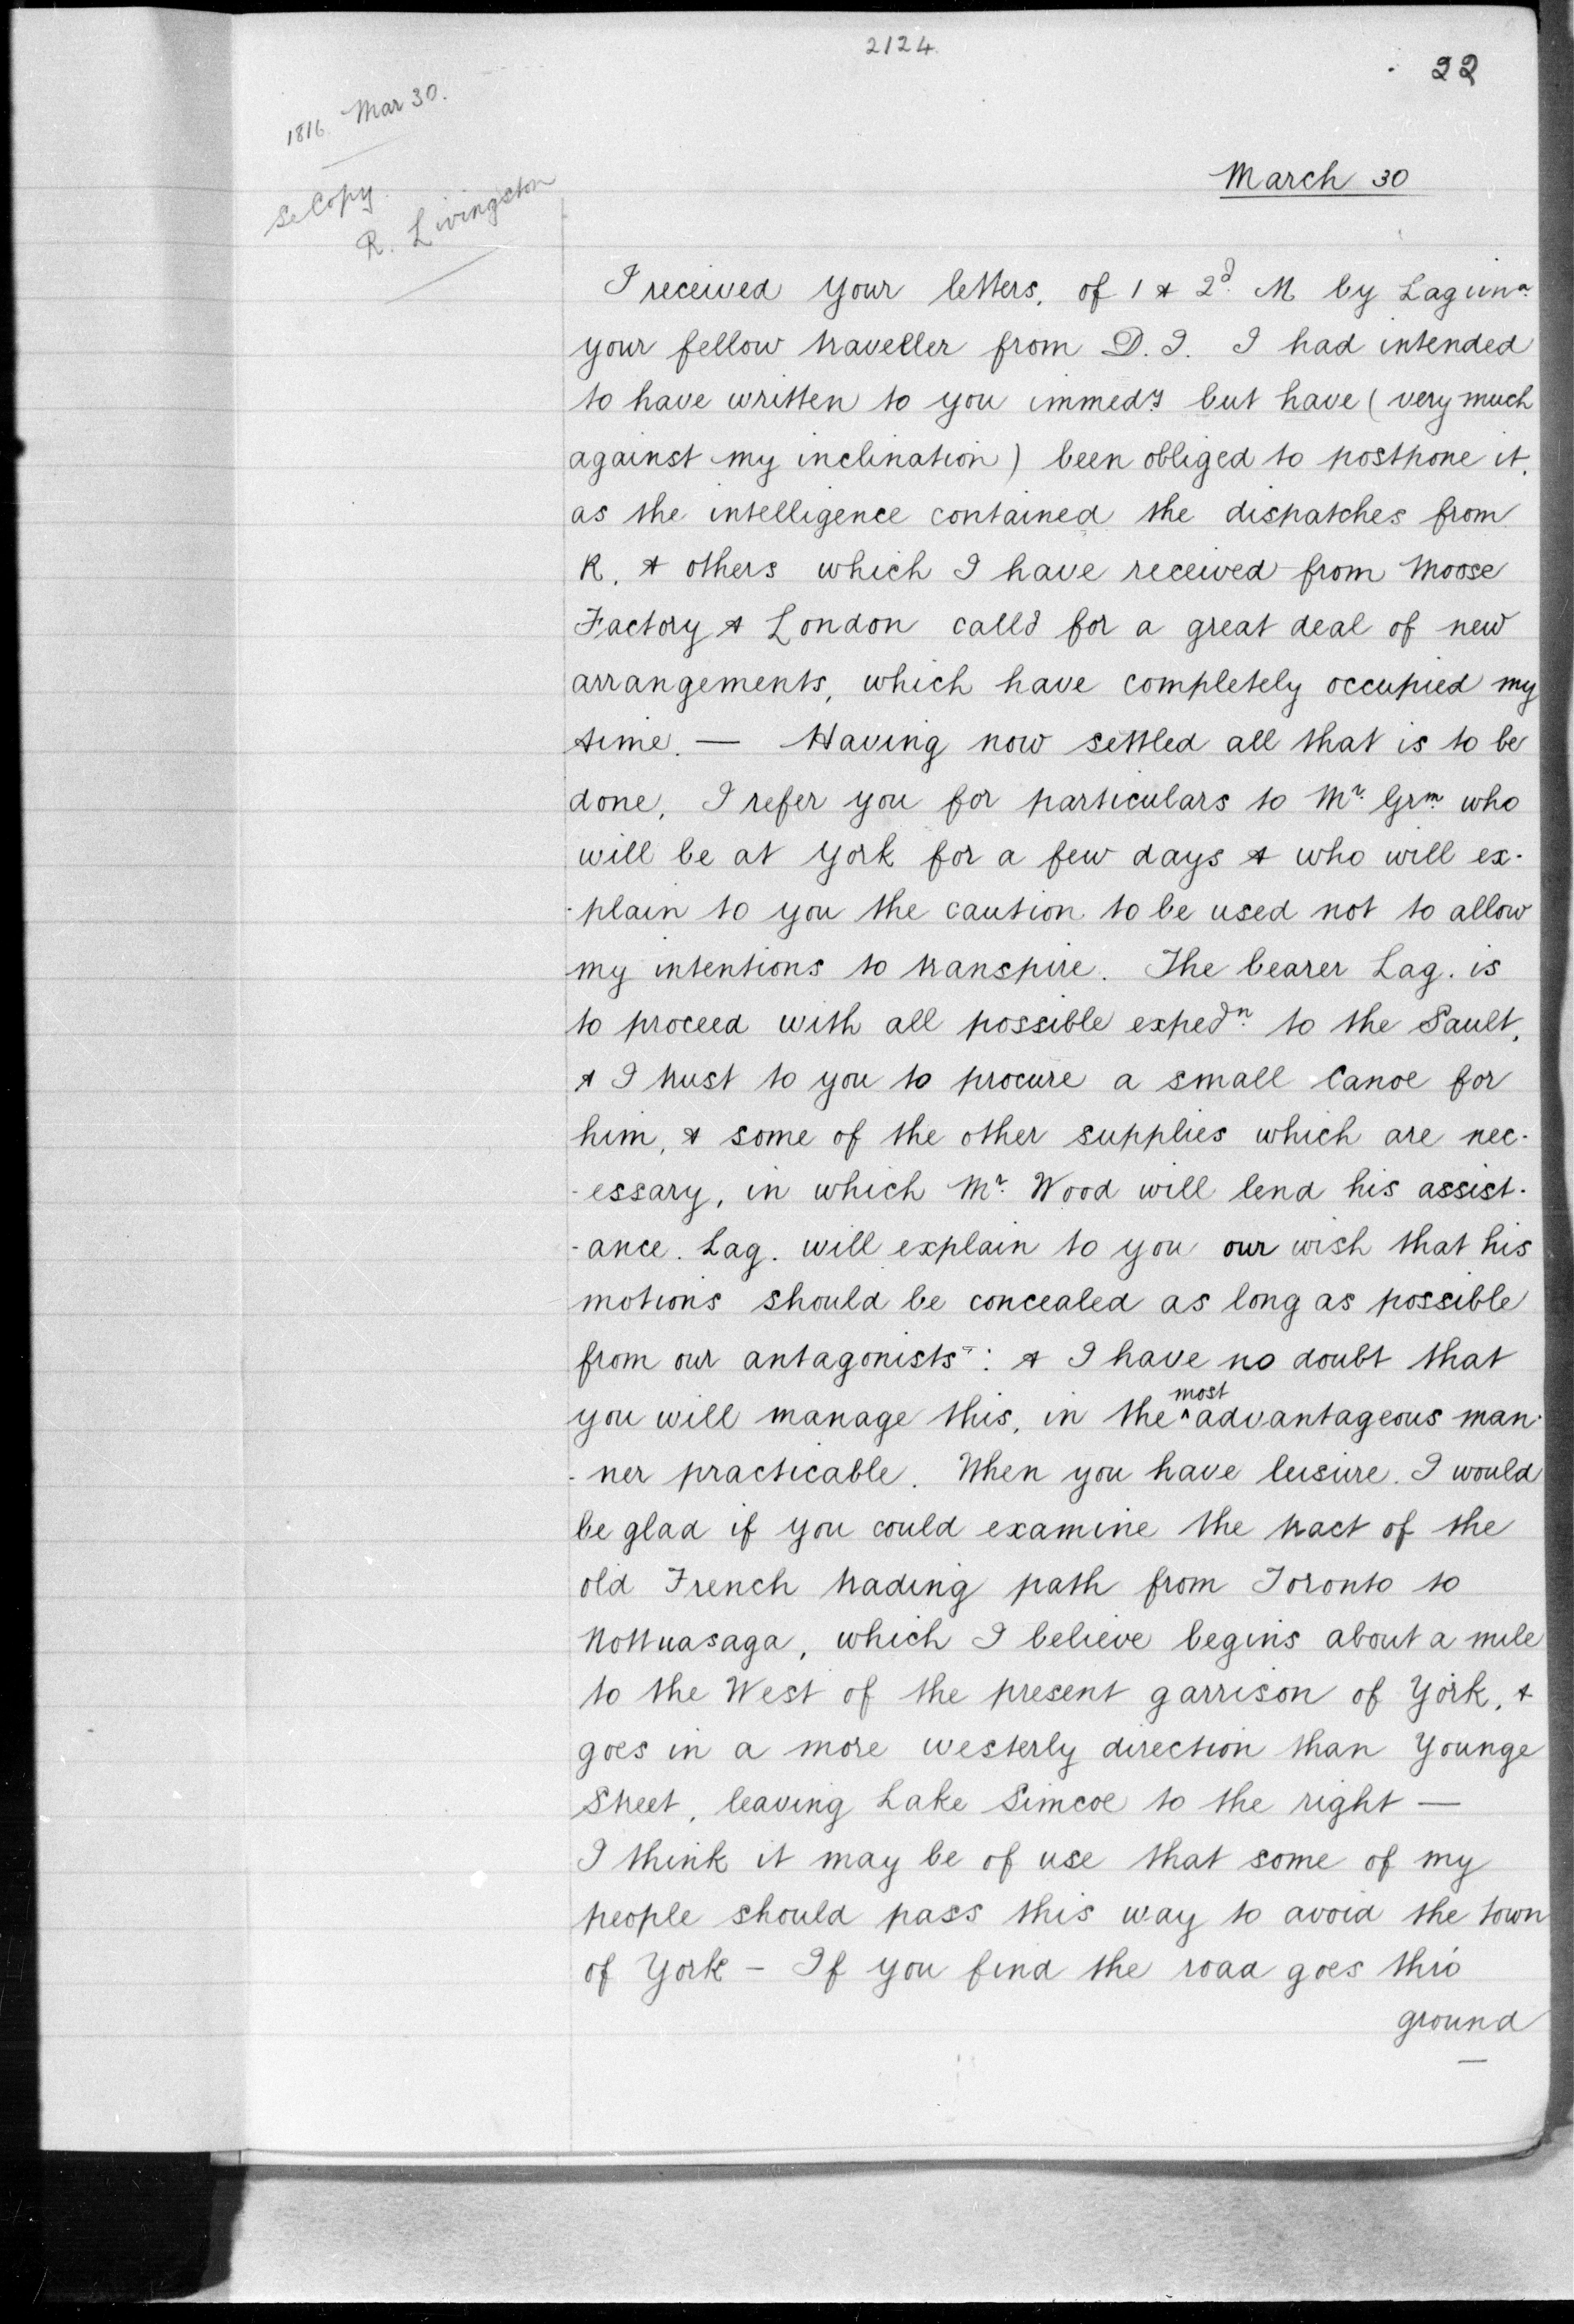 2124
22
1816. Mar 30.
Se Copy.
R. Livingston
March 30
I received your letters, of 1 & 2d. M by Lagima.
your fellow traveller from D.I. I had intended
to have written to you immedy but have (very much
against my inclination) been obliged to postpone it,
as the intelligence contained the dispatches from
R. & others which I have received from Moose
Factory & London calld for a great deal of new
arrangements, which have completely occupied my
time. — Having now settled all that is to be
done, I refer you for particulars to Mr. Grm. who
will be at York for a few days & who will ex-
-plain to you the caution to be used not to allow
my intentions to transpire. The bearer Lag. is
to proceed with all possible expedn. to the Sault,
& I trust to you to procure a small Canoe for
him, & some of the other supplies which are nec-
-essary, in which Mr. Wood will lend his assist-
-ance. Lag. will explain to you our wish that his
motions should be concealed as long as possible
from our antagonists: & I have no doubt that
you will manage this, in the ^most advantageous man-
-ner practicable. When you have leisure. I would
be glad if you could examine the tract of the
old French trading path from Toronto to
Nottuasaga, which I believe begins about a mile
to the West of the present garrison of York, &
goes in a more westerly direction than Younge
Street, leaving Lake Simcoe to the right —
I think it may be of use that some of my
people should pass this way to avoid the town
of York - If you find the road goes thro'
ground